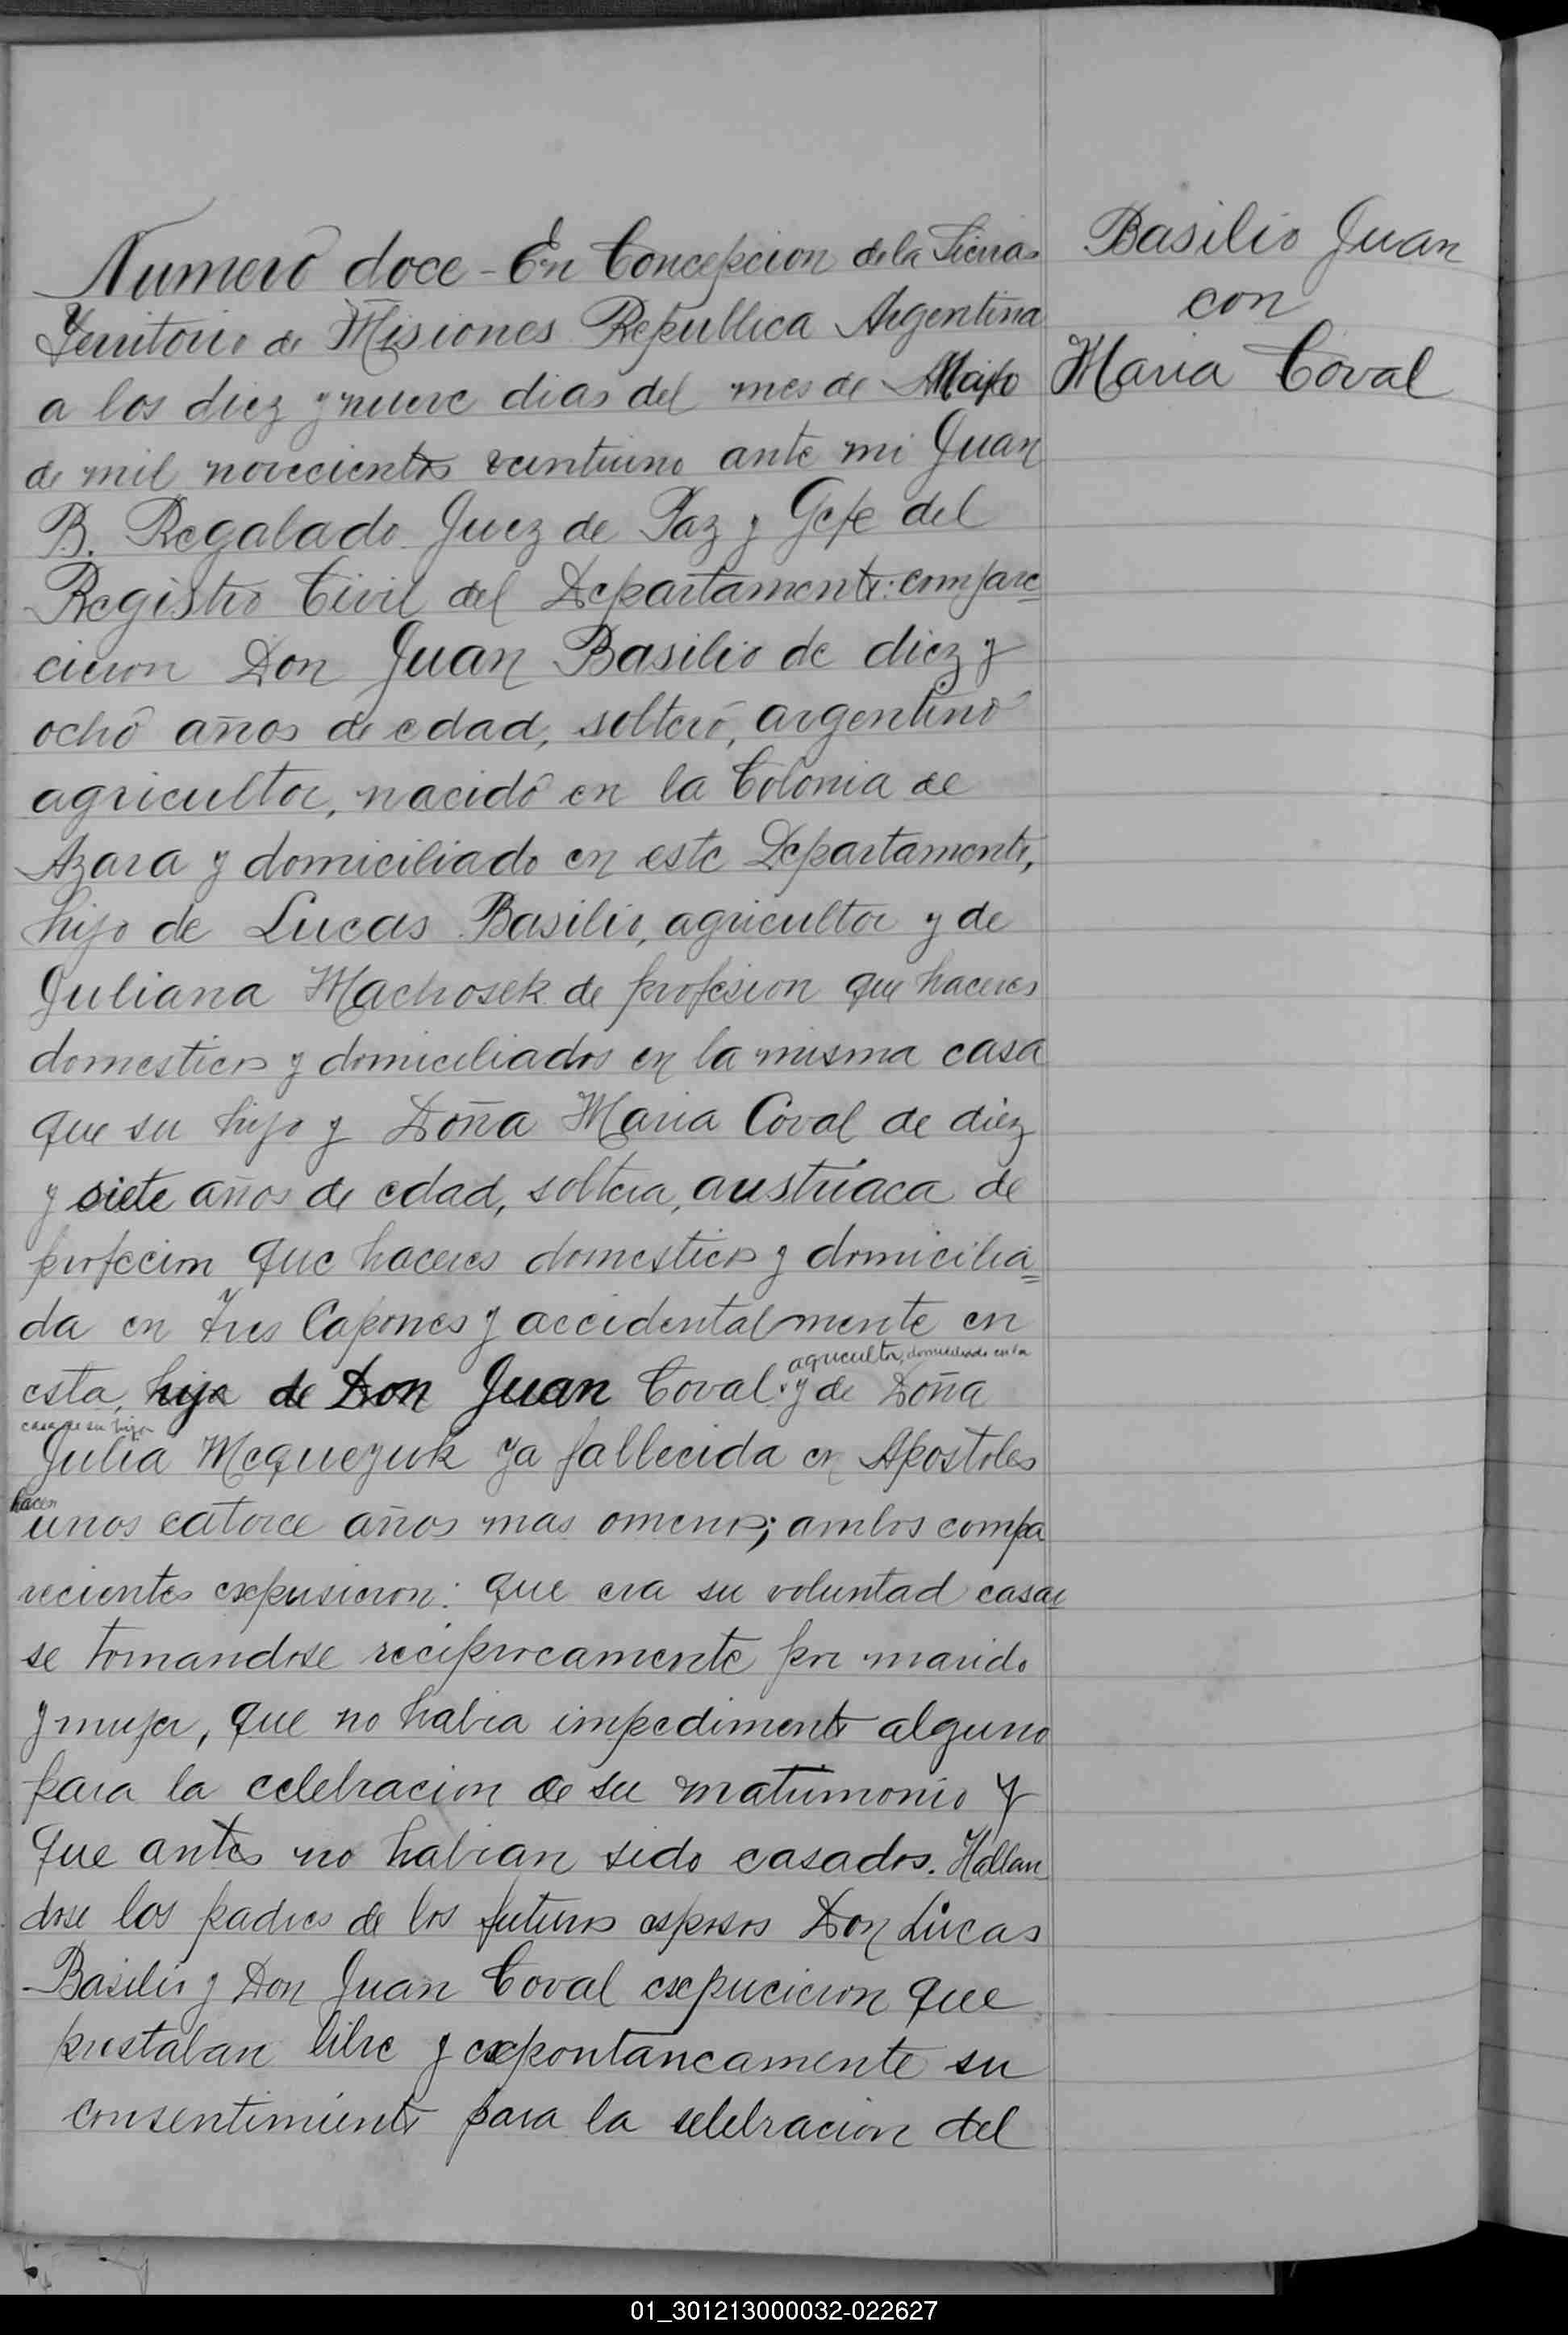 Basilio Juan
con
Maria Coval
Numero doce - En Concepcion de la Sierra
Territorio de Misiones Republica Argentina
a los diez y nueve dias del mes de Mayo
de mil novecientos veintiuno ante mi Juan
B. Regalado Juez de Paz y Gefe del
Registro Civil del Departamento: compare
cieron Don Juan Basilio de diez y
ocho años de edad, soltero, argentino
agricultor, nacido en la Colonia de
Azara y domiciliado en este Departamento,
hijo de Lucas Basilio, agricultor y de
Juliana Machosek de profesion que haceres
domesticos y domiciliados en la misma casa
que su hijo y Doña Maria Coval de diez
y siete años de edad, soltera, austriaca de
profecion que haceres domesticos y domicilia=
da en Tres Capones y accidentalmente en
agricultor, domiciliado en la
esta, hija de Don Juan Coval y de Doña
casa de su hija
Julia ya fallecida en Apostoles
hacen
unos catorce años mas omenos; ambos compa
recientes expusieron: que era su voluntad casar
se tomandose reciprocamente por marido
y mujer, que no habia impedimento alguno
para la celebracion de su matrimonio y
que antes no habian sido casados. Hallan
dose los padres de los futuros esposos Don Lucas
Basilio y Don Juan Coval expucieron que
prestaban libre y expontaneamente su
consentimiento para la selebracion del
01_301213000032-022627